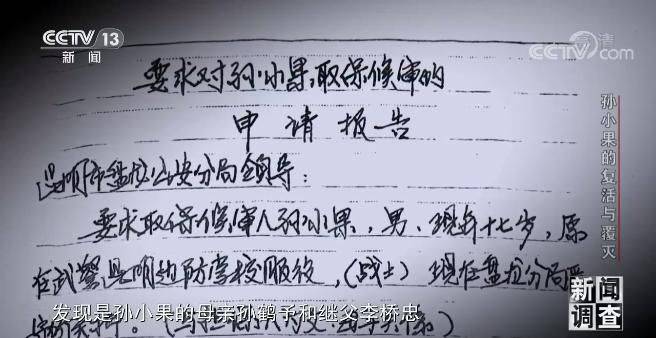 CCTV 13
新闻
CCTV.com
清
要求对孙小果取保候审的
申请报告
昆明市盘龙公安分局领导：
要求取保候审人孙小果，男、现年十七岁，原
在武警昆明边防学校服役，（战士）现在盘龙分局严
发现是孙小果的母亲孙鹤予和继父李桥忠
孙小果的复活与覆灭
新闻
调查